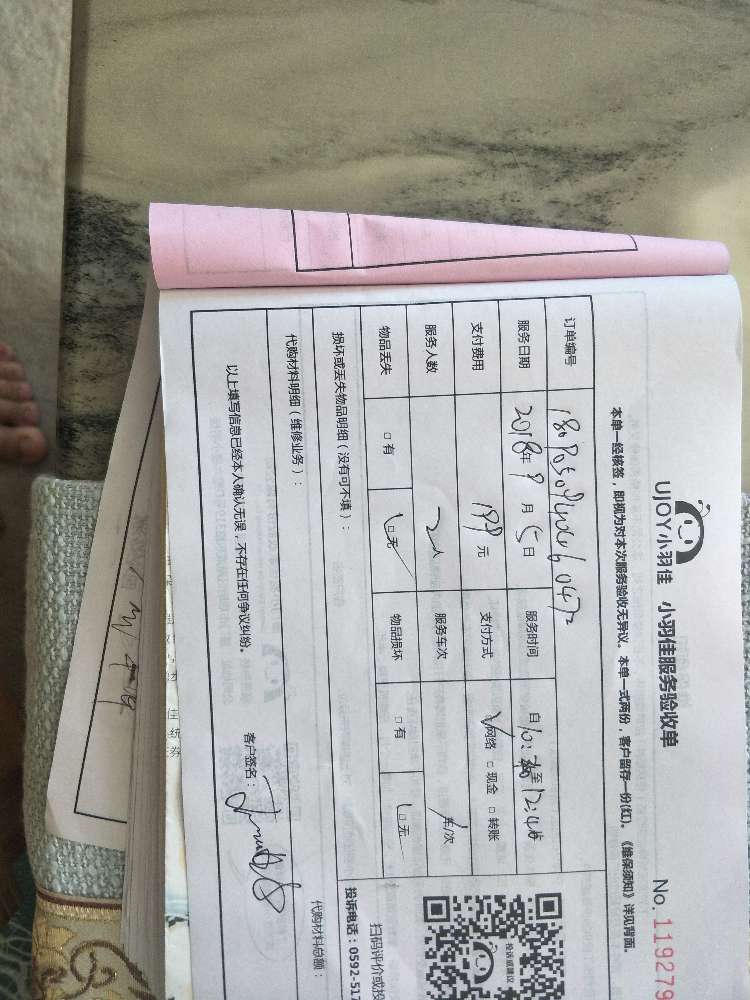 UJOY小羽佳 小羽佳服务验收单
No. 119279
本单一经核签，即视为对本次服务验收无异议。本单一式两份，客户留存一份(红)。《维保须知》详见背面。
订单编号
服务日期 2018年9月5日 服务时间 自10: 至12:45
支付费用 199元 支付方式 网络 现金 转账
服务人数 2人 服务车次 车/次
物品丢失 有 无 物品损坏 有 无
损坏或丢失物品明细（没有可不填）：
代购材料明细（维修业务）：
代购材料总额：
以上填写信息已经本人确认无误，不存在任何争议纠纷。
客户签名：
投诉或建议
扫码评价或投
投诉电话：0592-517